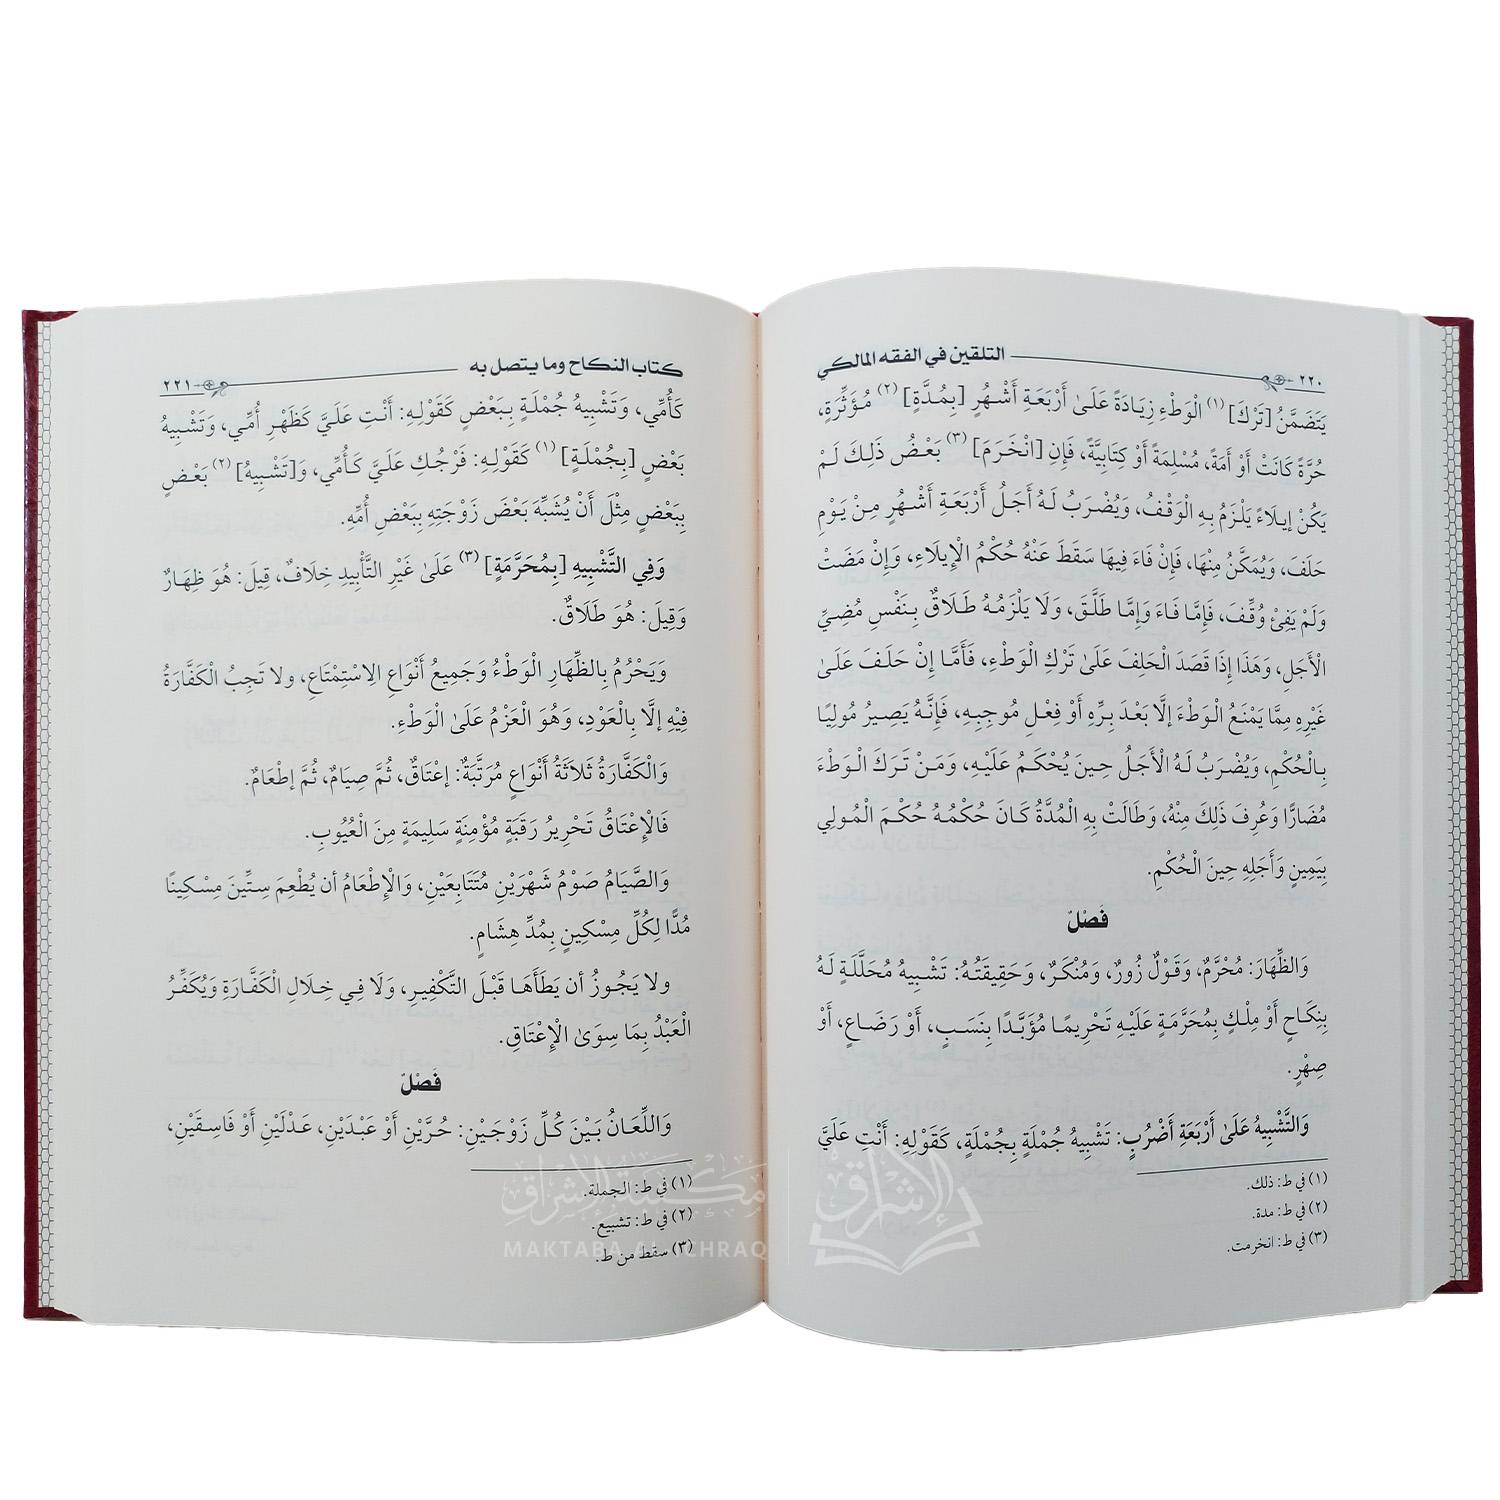 ٢٢٠ التلقين في الفقه المالكي
يَتَضَمَّنُ [تَرْكَ] (١) الْوَطْءِ زِيَادَةً عَلَىٰ أَرْبَعَةِ أَشْهُرٍ [بِمُدَّةٍ] (٢) مُؤَثِّرَةٍ،
حُرَّةً كَانَتْ أَوْ أَمَةً، مُسْلِمَةً أَوْ كِتَابِيَّةً، فَإِنِ [انْخَرَمَ] (٣) بَعْضُ ذَلِكَ لَمْ
يَكُنْ إيلَاءً يَلْزَمُ بِهِ الْوَقْفُ، وَيُضْرَبُ لَهُ أَجَلُ أَرْبَعَةِ أَشْهُرٍ مِنْ يَوْمِ
حَلَفَ، وَيُمَكَّنُ مِنْهَا، فَإِنْ فَاءَ فِيهَا سَقَطَ عَنْهُ حُكْمُ الْإِيلَاءِ، وَإِنْ مَضَتْ
وَلَمْ يَفِئْ وُقِّفَ، فَإِمَّا فَاءَ وَإِمَّا طَلَّقَ، وَلَا يَلْزَمُهُ طَلَاقٌ بِنَفْسِ مُضِيِّ
الْأَجَلِ، وَهَذَا إِذَا قَصَدَ الْحَلِفَ عَلَىٰ تَرْكِ الْوَطْءِ، فَأَمَّا إِنْ حَلَفَ عَلَىٰ
غَيْرِهِ مِمَّا يَمْنَعُ الْوَطْءَ إلَّا بَعْدَ بِرِّهِ أَوْ فِعْلِ مُوجِبِهِ، فَإِنَّهُ يَصِيرُ مُولِيًا
بِالْحُكْمِ، وَيُضْرَبُ لَهُ الْأَجَلُ حِينَ يُحْكَمُ عَلَيْهِ، وَمَنْ تَرَكَ الْوَطْءَ
مُضَارًّا وَعُرِفَ ذَلِكَ مِنْهُ، وَطَالَتْ بِهِ الْمُدَّةُ كَانَ حُكْمُهُ حُكْمَ الْمُولِي
بِيَمِينٍ وَأَجَلِهِ حِينَ الْحُكْمِ.
فَصْلٌ
وَالظِّهَارَ: مُحْرَّمٌ، وَقَوْلٌ زُورٌ، وَمُنْكَرٌ، وَحَقِيقَتُهُ: تَشْبِيهُ مُحَلَّلَةٍ لَهُ
بِنِكَاحٍ أَوْ مِلْكٍ بِمُحَرَّمَةٍ عَلَيْهِ تَحْرِيمًا مُؤَبَّدًا بِنَسَبٍ، أَوْ رَضَاعٍ، أَوْ
صِهْرٍ.
وَالتَّشْبِيهُ عَلَىٰ أَرْبَعَةِ أَضْرُبٍ: تَشْبِيهُ جُمْلَةٍ بِجُمْلَةٍ، كَقَوْلِهِ: أَنْتِ عَلَيَّ
(١) في ط: ذلك.
(٢) في ط: مدة.
(٣) في ط: انخرمت.
كتاب النكاح وما يتصل به ٢٢١
كَأُمِّي، وَتَشْبِيهُ جُمْلَةٍ بِبَعْضٍ كَقَوْلِهِ: أَنْتِ عَلَيَّ كَظَهْرِ أُمِّي، وَتَشْبِيهُ
بَعْضٍ [بِجُمْلَةٍ] (١) كَقَوْلِهِ: فَرْجُكِ عَلَيَّ كَأُمِّي، وَ[تَشْبِيهُ] (٢) بَعْضٍ
بِبَعْضٍ مِثْلَ أَنْ يُشَبِّهَ بَعْضَ زَوْجَتِهِ بِبَعْضِ أُمِّهِ.
وَفِي التَّشْبِيهِ [بِمُحَرَّمَةٍ] (٣) عَلَىٰ غَيْرِ التَّأْبِيدِ خِلَافٌ، قِيلَ: هُوَ ظِهَارٌ
وَقِيلَ: هُوَ طَلَاقٌ.
وَيَحْرُمُ بِالظِّهَارِ الْوَطْءُ وَجَمِيعُ أَنْوَاعِ الِاسْتِمْتَاعِ، ولا تَجِبُ الْكَفَّارَةُ
فِيهِ إلَّا بِالْعَوْدِ، وَهُوَ الْعَزْمُ عَلَىٰ الْوَطْءِ.
وَالْكَفَّارَةُ ثَلَاثَةُ أَنْوَاعٍ مُرَتَّبَةٌ: إعْتَاقٌ، ثُمَّ صِيَامٌ، ثُمَّ إطْعَامٌ.
فَالْإِعْتَاقُ تَحْرِيرُ رَقَبَةٍ مُؤْمِنَةٍ سَلِيمَةٍ مِنَ الْعُيُوبِ.
وَالصِّيَامُ صَوْمُ شَهْرَيْنِ مُتَتَابِعَيْنِ، وَالْإِطْعَامُ أن يُطْعِمَ سِتِّينَ مِسْكِينًا
مُدًّا لِكُلِّ مِسْكِينٍ بِمُدِّ هِشَامٍ.
ولا يَجُوزُ أن يَطَأَهَا قَبْلَ التَّكْفِيرِ، وَلَا فِي خِلَالِ الْكَفَّارَةِ وَيُكَفِّرُ
الْعَبْدُ بِمَا سِوَىٰ الْإِعْتَاقِ.
فَصْلٌ
وَاللِّعَانُ بَيْنَ كُلِّ زَوْجَيْنِ: حُرَّيْنِ أَوْ عَبْدَيْنِ، عَدْلَيْنِ أَوْ فَاسِقَيْنِ،
(١) في ط: الجملة.
(٢) في ط: تشبيع.
(٣) سقط من ط.
مكتبة الإشراق
MAKTABA AL ICHRAQ
الإشراق